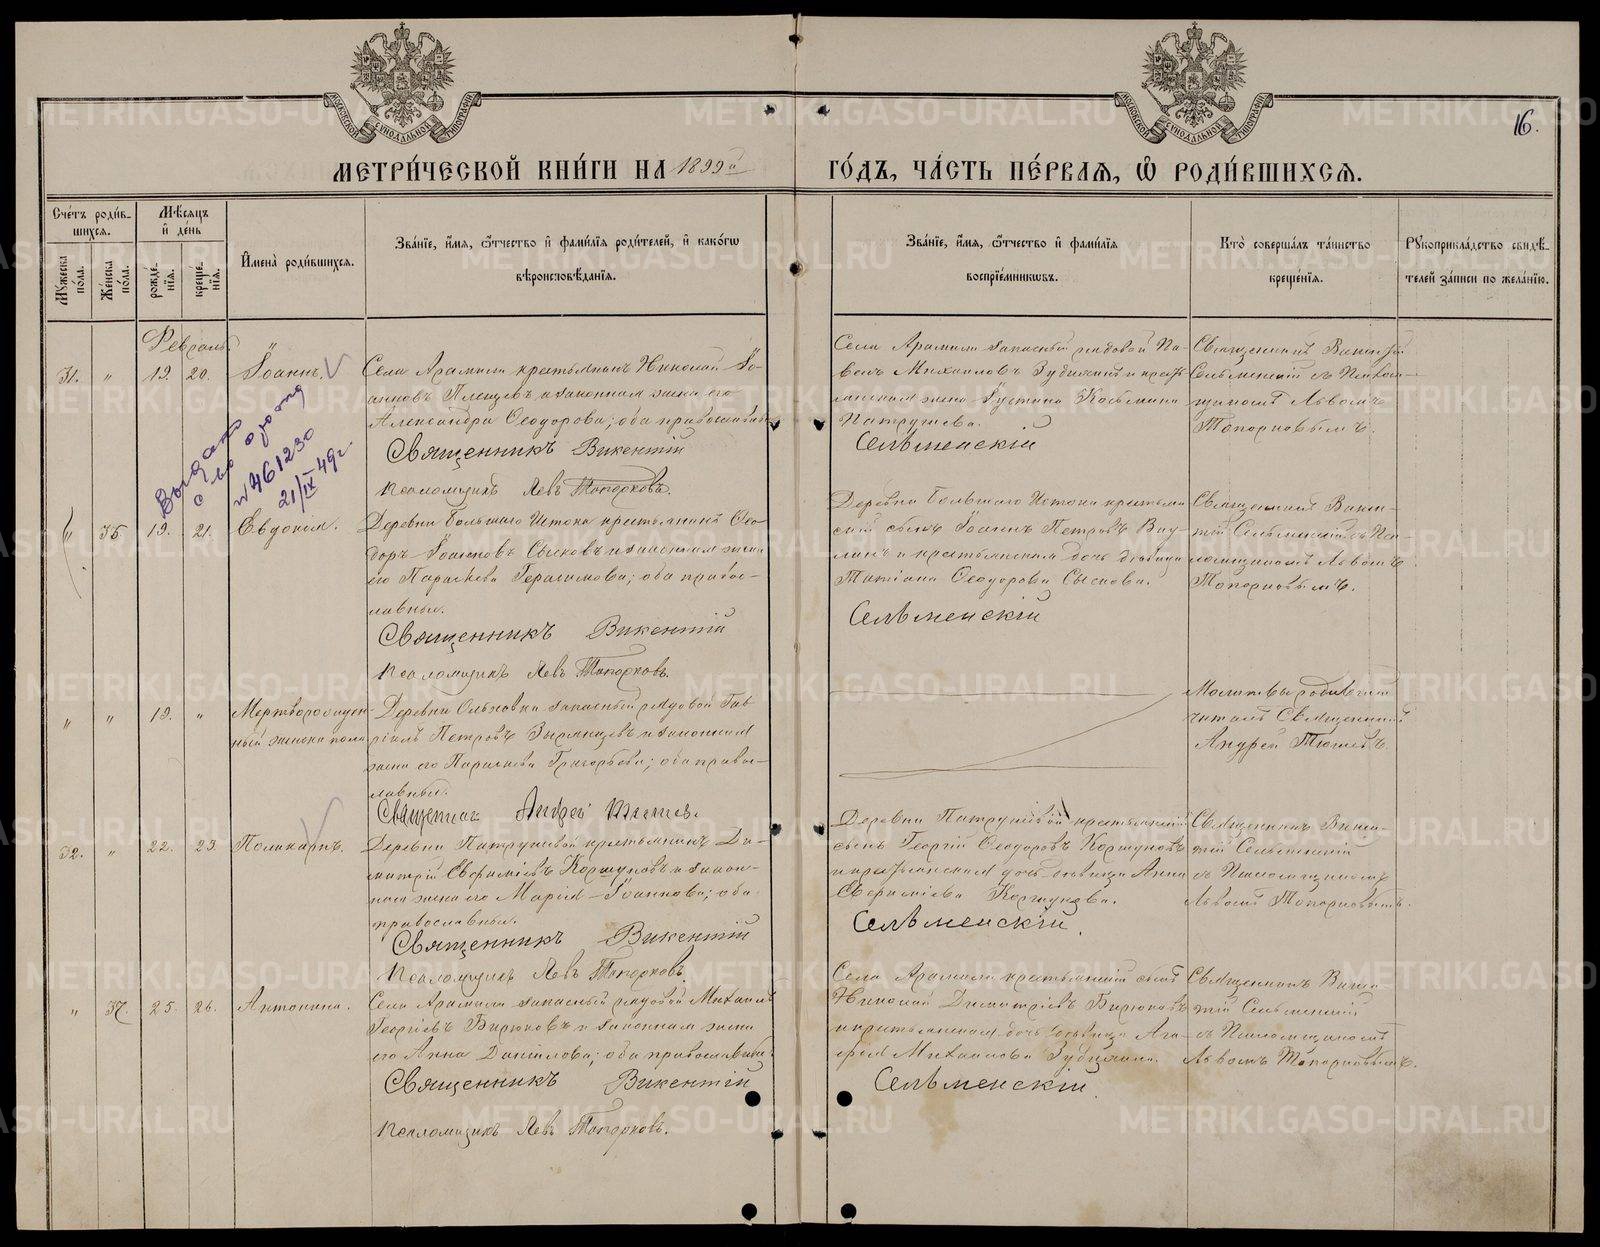 МОСКОВСКОЙ СУНОДАЛЬНОЙ ТИПОГРАФІИ
МОСКОВСКОЙ СУНОДАЛЬНОЙ ТИПОГРАФІИ
16.
МЕТРИ́ЧЕСКОЙ КНИ́ГИ НА 1899й ГО́ДЪ, ЧА́СТЬ ПЕ́РВАѦ, Ѡ҆ РОДИ́ВШИХСѦ.
Сче́тъ роди́в-
шихсѧ.
Мꙋ́жеска по́ла.
Же́нска по́ла.
Мѣ́сѧцъ и҆ де́нь
рожде-
нїѧ.
креще-
нїѧ.
И҆мена̀ роди́вшихсѧ.
Зва́нїе, и҆́мѧ, ѻ҆́тчество и҆ фами́лїѧ роди́телей, и҆ како́гѡ
вѣроисповѣ́данїѧ.
Зва́нїе, и҆́мѧ, ѻ҆́тчество и҆ фами́лїѧ
воспрїе́мникѡвъ.
Кто̀ соверша́лъ та́инство
креще́нїѧ.
Рꙋкоприкла́дство свидѣ́-
телей за́писи по жела́нїю.
Февраль.
31. " 19. 20. Іоаннъ.
Села Арамили крестьянинъ Николай Іо-
анновъ Плещевъ и законная жена его
Александра Ѳеодорова; оба православные
Священникъ Викентій
Псаломщикъ Левъ Топорковъ.
Села Арамили запасный рядовой Па-
велъ Михаиловъ Зубилинъ и кресть-
янская жена Іустина Косьмина
Патрушева.
Сельменскій
Священникъ Викентій
Сельменскій съ Псалом-
щикомъ Львомъ
Топорковымъ.
Выдано
с-во о рожд
№461230
21/IX 49г.
" 36. 19. 21. Евдокія.
Деревни Большаго Истока крестьянинъ Ѳео-
доръ Іоанновъ Сысковъ и законная жена
его Параскева Герасимова; оба правос-
лавные.
Священникъ Викентій
Псаломщикъ Левъ Топорковъ.
Деревни Большаго Истока крестьян-
скій сынъ Іоаннъ Петровъ
и крестьянская дочь дѣвица
Татіана Ѳеодорова Сыскова.
Сельменскій
Священникъ Викен-
тій Сельменскій съ Пса-
ломщикомъ Львомъ
Топорковымъ.
" " 19. " Мертворожден-
ный женска пола
Деревни Ольховки запасный рядовой Гав-
ріилъ Петровъ Зырянцевъ и законная
жена его Параскева Григорьева; оба правос-
лавные.
Священник Андрей
Молитвы родильницѣ
читалъ Священникъ
Андрей
32. " 22. 23. Поликарпъ.
Деревни Патрушевой крестьянинъ Ди-
митрій Евфиміевъ Коршуновъ и закон-
ная жена его Марія Іоаннова; оба
православные.
Священникъ Викентій
Псаломщикъ Левъ Топорковъ.
Деревни Патрушевой крестьянскій
сынъ Георгій Ѳеодоровъ Коршуновъ
и крестьянская дочь дѣвица Анна
Евфиміева Коршунова.
Сельменскій.
Священникъ Викен-
тій Сельменскій
съ Псаломщикомъ
Львомъ Топорковымъ.
" 37. 25. 26. Антонина.
Села Арамили запасный рядовой Михаилъ
Георгіевъ Бирюковъ и законная жена
его Анна Даніилова; оба православные
Священникъ Викентій
Псаломщикъ Левъ Топорковъ.
Села Арамили крестьянскій сынъ
Николай Димитріевъ Бирюковъ
и крестьянская дочь дѣвица Ага-
фія Михаилова Зубилина.
Сельменскій.
Священникъ Викен-
тій Сельменскій
съ Псаломщикомъ
Львомъ Топорковымъ.
METRIKI.GASO-URAL.RU